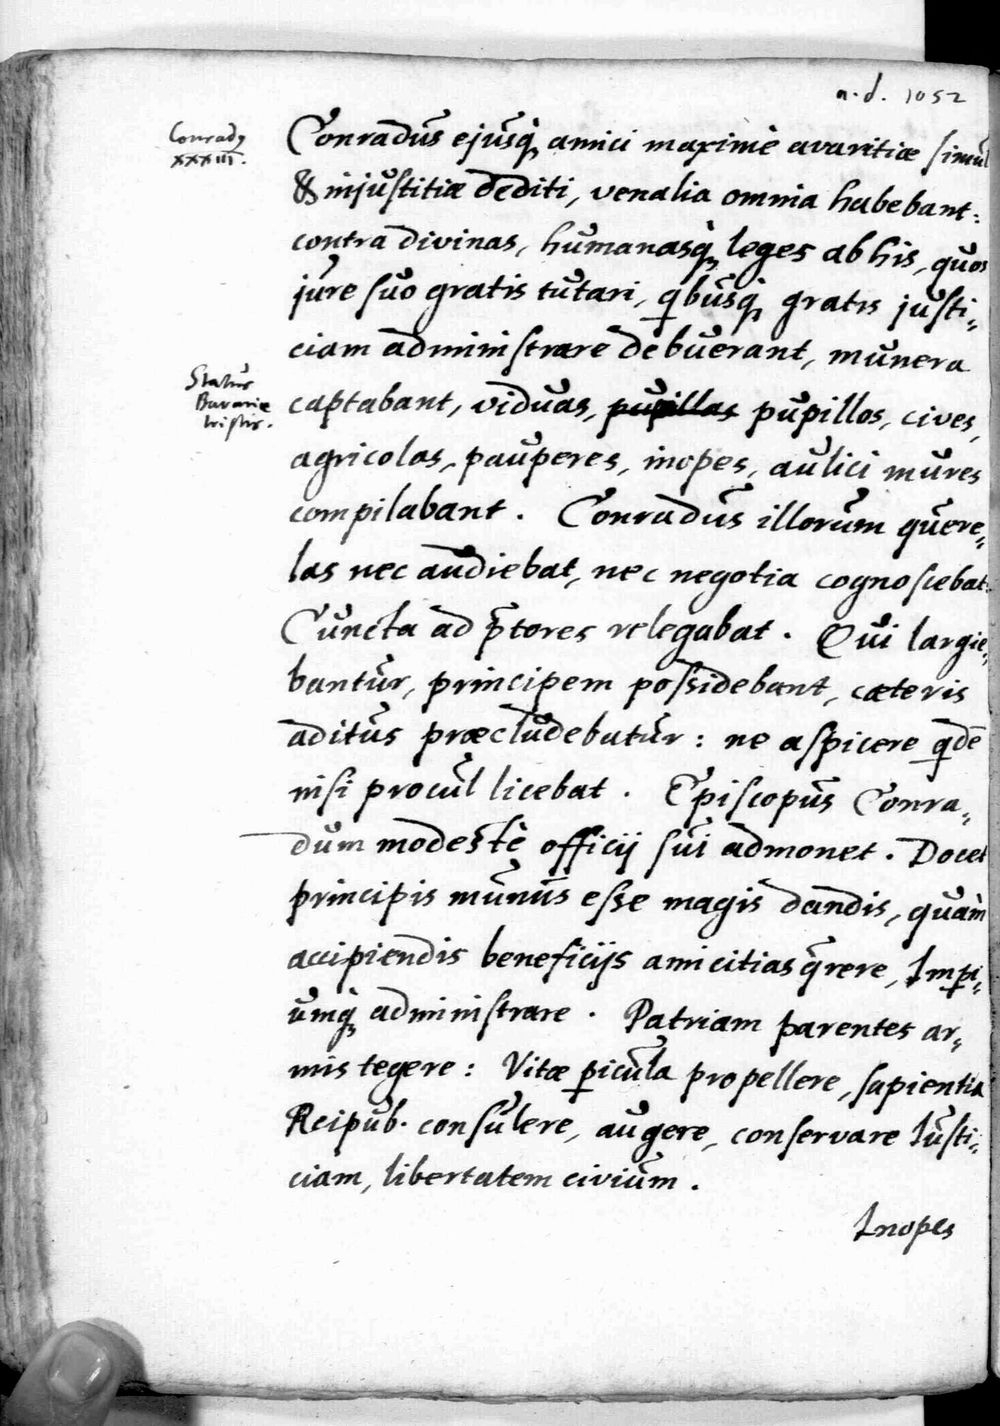 a.d. 1052
Conradꝰ
XXXIII.
Conradus ejusq̀ amici maximè avaritiæ simul
& injustitiæ dediti, venalia omnia habebant:
contra divinas, humanasq̀ leges ab his, quos
jure suo gratis tutari, qbusq̀ gratis justi„
ciam administrare debuerant, munera
Status
Bavariæ
tristis.
captabant, viduas, pupillas pupillos, cives,
agricolas, pauperes, inopes, aulici mures
compilabant. Conradus illorum quere„
las nec audiebat, nec negotia cognoscebat:
Cuncta ad p̄tores relegabat. Qui largie„
bantur, principem possidebant, cæteris
aditus præcludebatur: ne aspicere qdē
nisi procul licebat. Episcopus Conra„
dum modestè officij sui admonet. Docet
principis munus esse magis dandis, quàm
accipiendis beneficijs amicitias q̄rere, Imꝑi„
umq̀ administrare. Patriam parentes ar„
mis tegere: Vitæ ꝑicula propellere, sapientia
Reipub. consulere, augere, conservare Justi„
ciam, libertatem civium.
Inopes